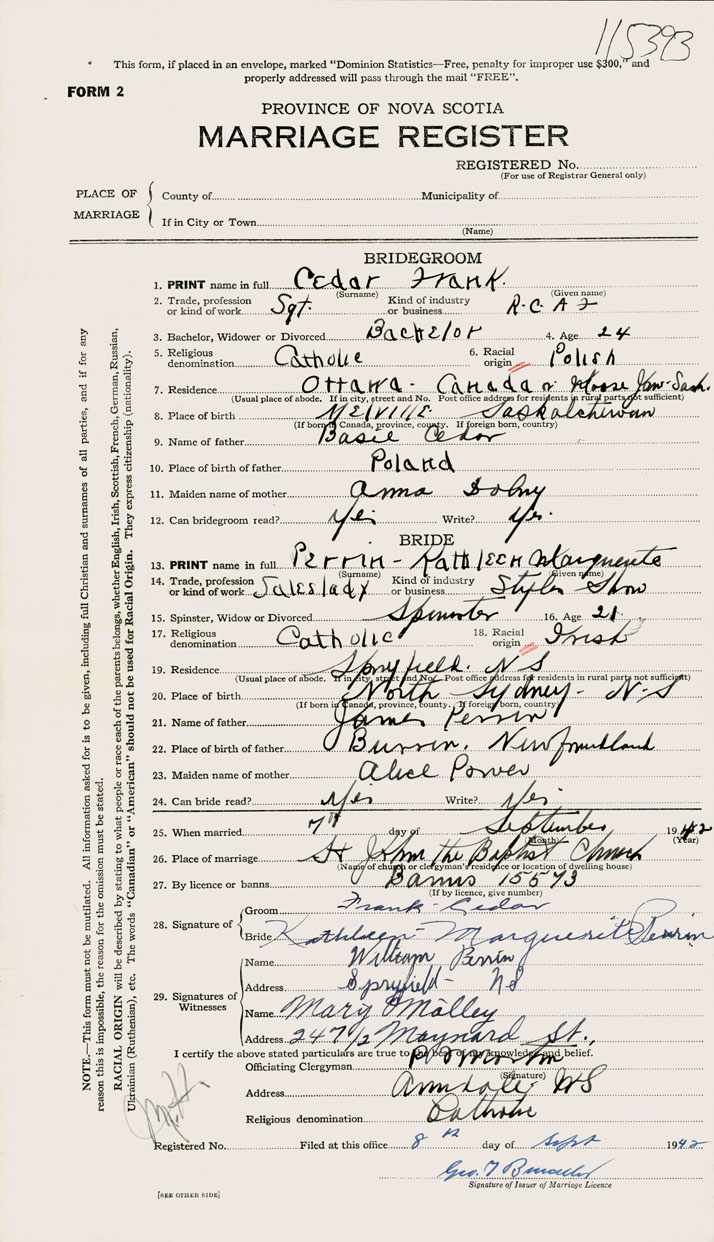 115393
This form, if placed in an envelope, marked "Dominion Statistics—Free, penalty for improper use $300," and
properly addressed will pass through the mail "FREE".
FORM 2
PROVINCE OF NOVA SCOTIA
MARRIAGE REGISTER
REGISTERED No.
(For use of Registrar General only)
PLACE OF MARRIAGE
County of Municipality of
If in City or Town
(Name)
BRIDEGROOM
1. PRINT name in full Cedar Frank.
(Surname) (Given name)
2. Trade, profession or kind of work Sgt. Kind of industry or business R.C.A.F
3. Bachelor, Widower or Divorced Bachelor 4. Age 24
5. Religious denomination Catholic 6. Racial origin Polish
7. Residence Ottawa - Canada or Moose Jaw-Sask.
(Usual place of abode. If in city, street and No. Post office address for residents in rural parts not sufficient)
8. Place of birth MELVILLE Saskatchewan
(If born in Canada, province, county. If foreign born, country)
9. Name of father Basil Cedar
10. Place of birth of father Poland
11. Maiden name of mother Anna Dolny
12. Can bridegroom read? Yes Write? Yes.
BRIDE
13. PRINT name in full Perrin - Kathleen Marguerite
(Surname) (Given name)
14. Trade, profession or kind of work Saleslady Kind of industry or business Styles Show
15. Spinster, Widow or Divorced Spinster 16. Age 21
17. Religious denomination Catholic 18. Racial origin Irish
19. Residence Spryfield. N S
(Usual place of abode. If in city, street and No. Post office address for residents in rural parts not sufficient)
20. Place of birth North Sydney - N-S
(If born in Canada, province, county. If foreign born, country)
21. Name of father James Perrin
22. Place of birth of father Burrin. Newfoundland
23. Maiden name of mother Alice Power
24. Can bride read? Yes Write? Yes
25. When married 7th day of September 1942
(Month) (Year)
26. Place of marriage St John the Baptist Church
(Name of church or clergyman's residence or location of dwelling house)
27. By licence or banns Banns 15573
(If by licence, give number)
28. Signature of
Groom Frank Cedar
Bride Kathleen Marguerite Perrin
29. Signatures of Witnesses
Name William Perrin
Address Spryfield - NS
Name Mary O'Malley
Address 247 1/2 Maynard St.,
I certify the above stated particulars are true to the best of my knowledge and belief.
Officiating Clergyman
(Signature)
Address Armdale NS
Religious denomination Catholic
Registered No. Filed at this office 8th day of Sept 1942
Geo. T
Signature of Issuer of Marriage Licence
[SEE OTHER SIDE]
NOTE.—This form must not be mutilated. All information asked for is to be given, including full Christian and surnames of all parties, and if for any
reason this is impossible, the reason for the omission must be stated.
RACIAL ORIGIN will be described by stating to what people or race each of the parents belongs, whether English, Irish, Scottish, French, German, Russian,
Ukrainian (Ruthenian), etc. The words "Canadian" or "American" should not be used for Racial Origin. They express citizenship (nationality).